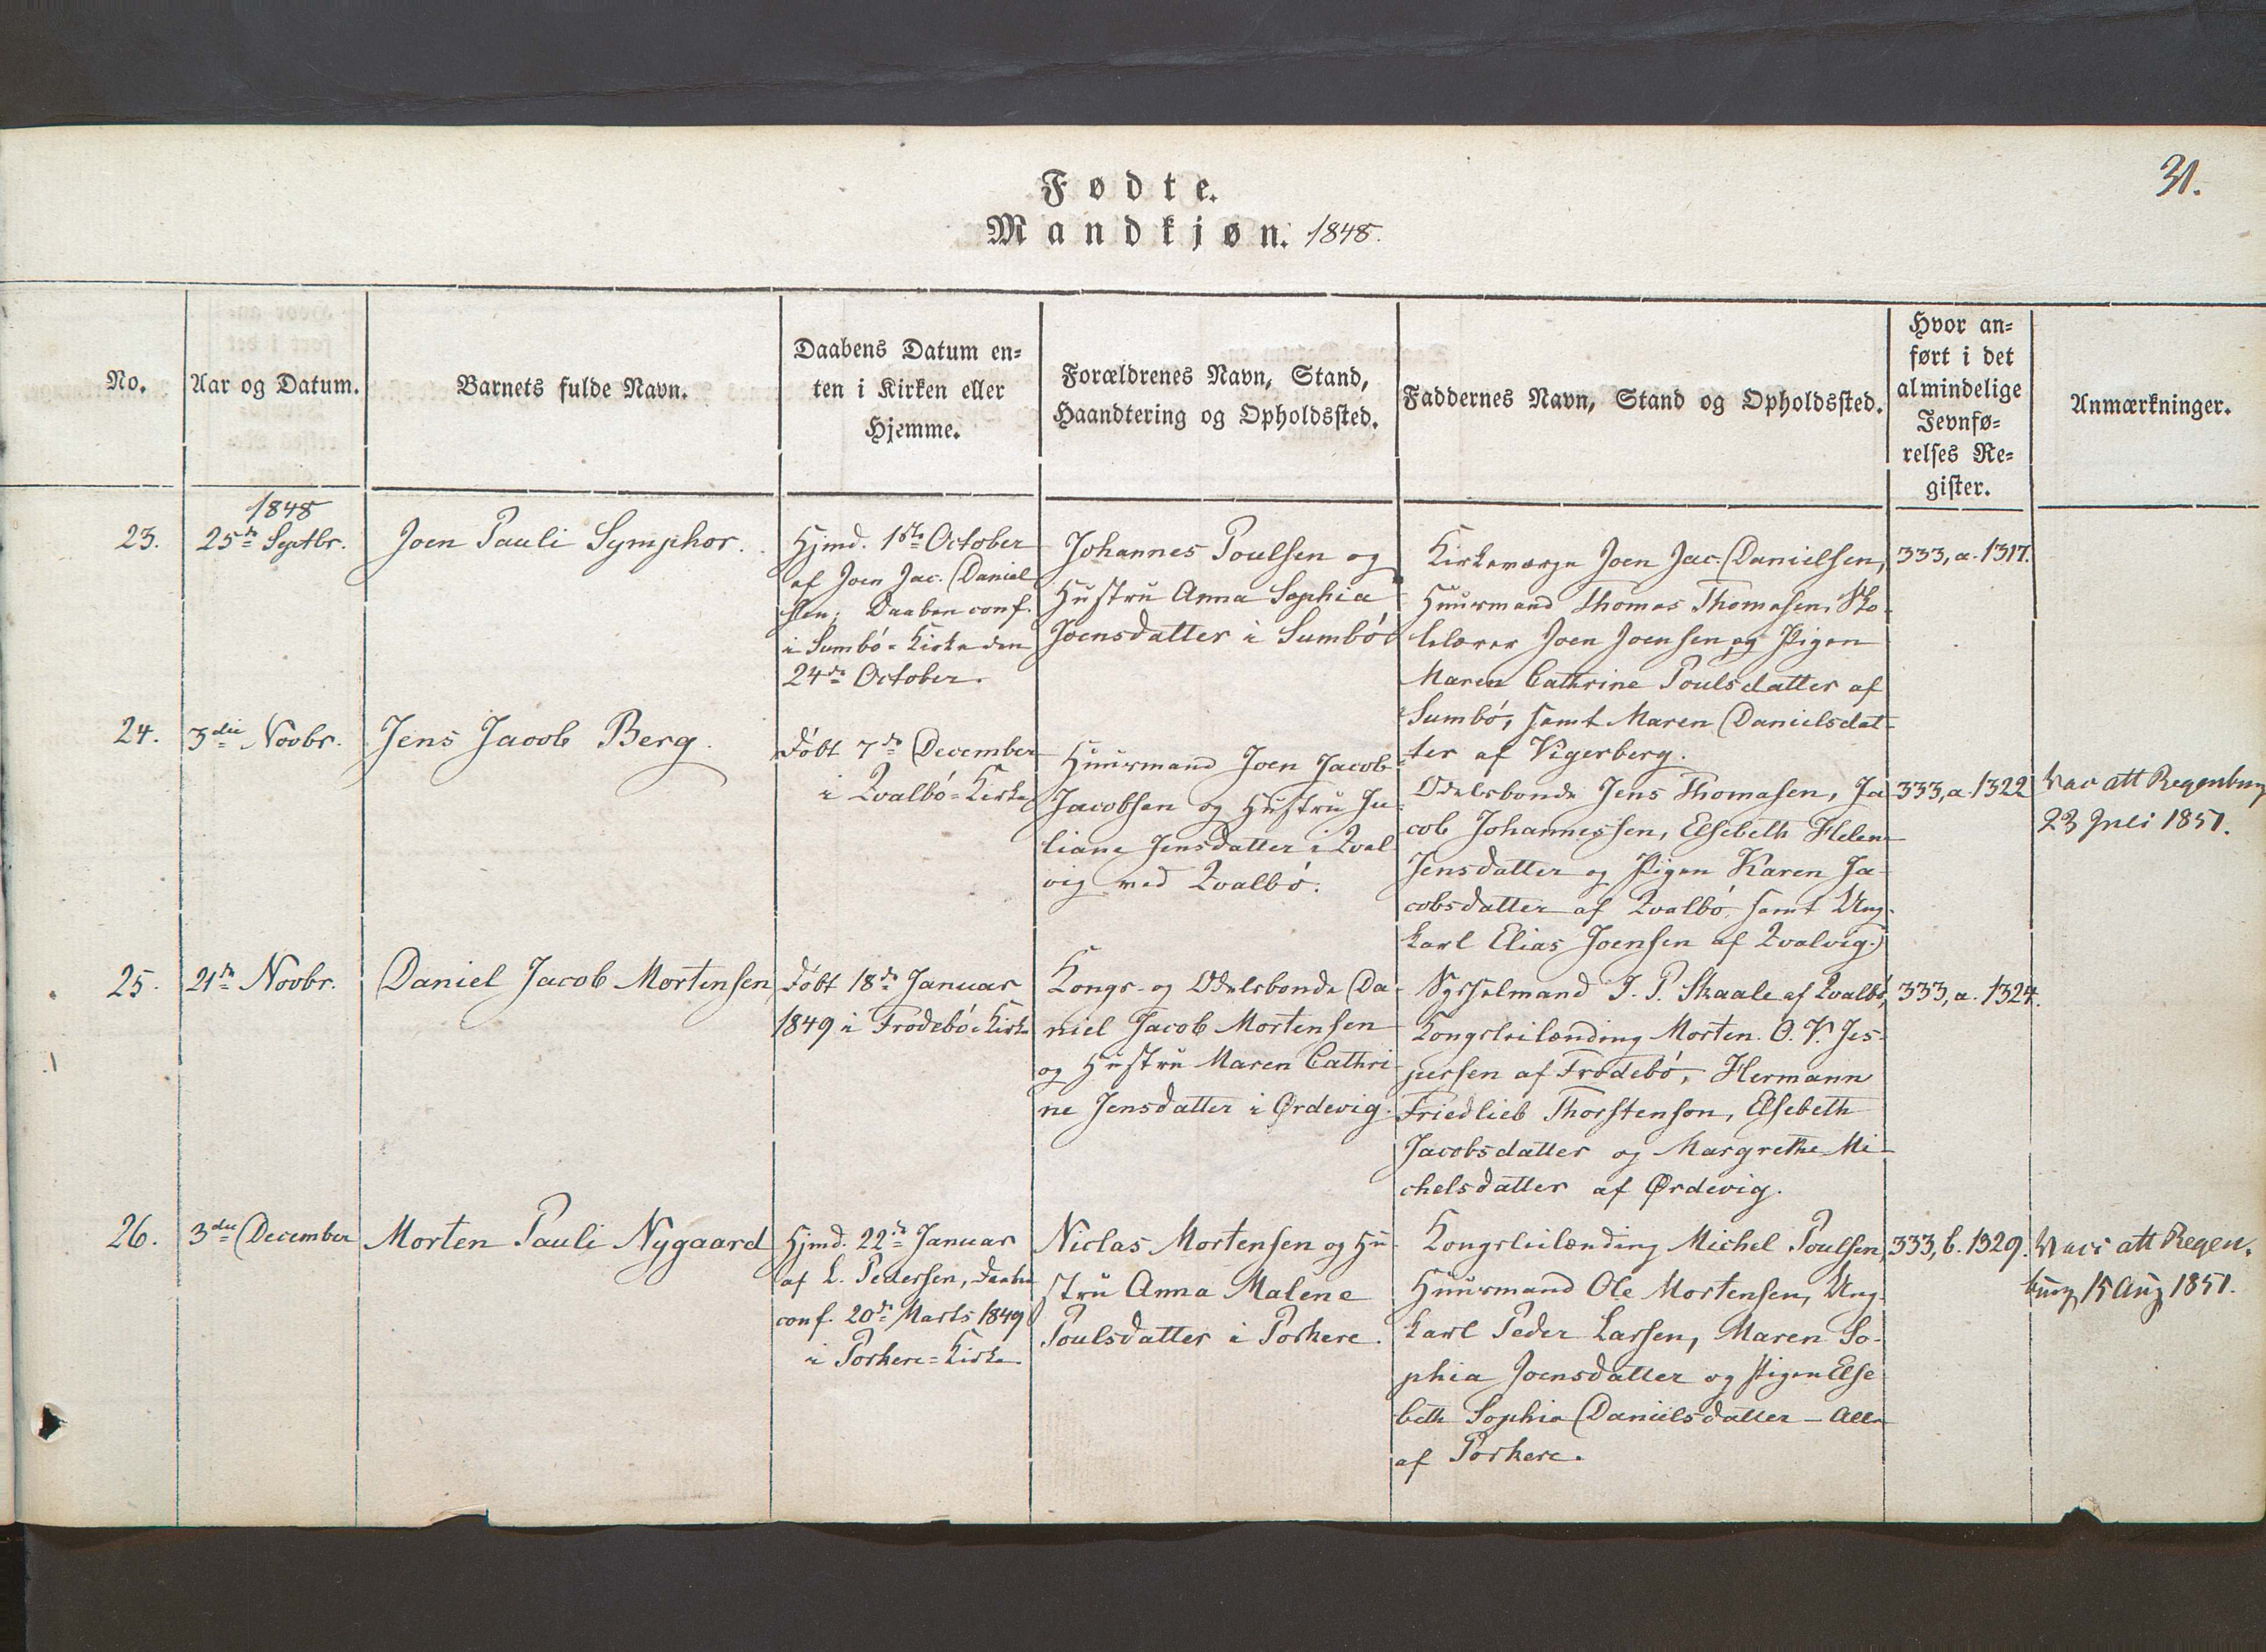 31.
Fødte.
Mandkjøn. 1848.
No.
Aar og Datum.
Barnets fulde Navn.
Daabens Datum en-
ten i Kirken eller
Hjemme.
Forældrenes Navn, Stand,
Haandtering og Opholdssted.
Faddernes Navn, Stand og Opholdssted.
Hvor an-
ført i det
almindelige
Jevnfø-
relses Re-
gister.
Anmærkninger.
23.
1848
25de Septbr.
Joen Pauli Symphor.
Hjmd. 1ste October
af Joen Jac. Daniel
sen; Daaben conf.
i Sumbø-Kirke den
24de October.
Johannes Poulsen og
Hustru Anna Sophia
Joensdatter i Sumbø
Kirkeværge Joen Jac. Danielsen,
Huusmand Thomas Thomasen, Sko-
lelærer Joen Joensen og Pigen
Maren Cathrine Poulsdatter af
Sumbø, samt Maren Danielsdat-
ter af Vigerberg.
333, a. 1317.
24.
3die Novbr.
Jens Jacob Berg.
Døbt 7de December
i Qvalbø-Kirke
Huusmand Joen Jacob
Jacobsen og Hustru Ju-
liane Jensdatter i Qval
vig ved Qvalbø.
Odelsbonde Jens Thomasen, Ja
cob Johannessen, Elsebeth Helen
Jensdatter og Pigen Karen Ja-
cobsdatter af Qvalbø, samt Ung-
karl Elias Joensen af Qvalvig.
333, a. 1322
Vac att Regenburg
23 Juli 1851.
25.
21de Novbr.
Daniel Jacob Mortensen
Døbt 18de Januar
1849 i Frodebø-Kirke
Kongs- og Odelsbonde Da-
niel Jacob Mortensen
og Hustru Maren Cathri-
ne Jensdatter i Ørdevig.
Sysselmand J. P. Skaale af Qvalbø,
Kongsleilænding Morten O. V. Jes-
persen af Frodebø, Hermann
Friedlieb Thorstenson, Elsebeth
Jacobsdatter og Margrethe Mi-
chelsdatter af Ørdevig.
333, a. 1324.
26.
3die December
Morten Pauli Nygaard
Hjmd. 22de Januar
af L. Pedersen, Daaben
conf. 20de Marts 1849
i Porkere-Kirke.
Niclas Mortensen og Hu-
stru Anna Malene
Poulsdatter i Porkere.
Kongsleilænding Michel Poulsen,
Huusmand Ole Mortensen, Ung-
karl Peder Larsen, Maren So-
phia Joensdatter og Pigen Else
beth Sophia Danielsdatter – Alle
af Porkere.
333, b. 1329.
Vacc att Regen-
burg 15 Aug 1851.